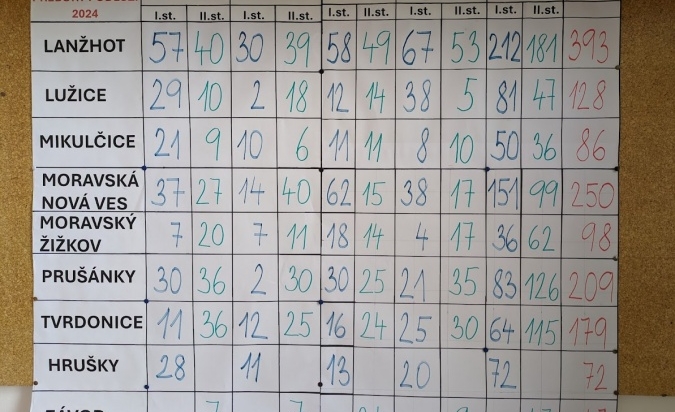 2024
I.st. II.st. I.st. II.st. I.st. II.st. I.st. II.st. I.st. II.st.
LANŽHOT 57 40 30 39 58 49 67 53 212 181 393
LUŽICE 29 10 2 18 12 14 38 5 81 47 128
MIKULČICE 21 9 10 6 11 11 8 10 50 36 86
MORAVSKÁ
NOVÁ VES 37 27 14 40 62 15 38 17 151 99 250
MORAVSKÝ
ŽIŽKOV 7 20 7 11 18 14 4 17 36 62 98
PRUŠÁNKY 30 36 2 30 30 25 21 35 83 126 209
TVRDONICE 11 36 12 25 16 24 25 30 64 115 179
HRUŠKY 28 11 13 20 72 72